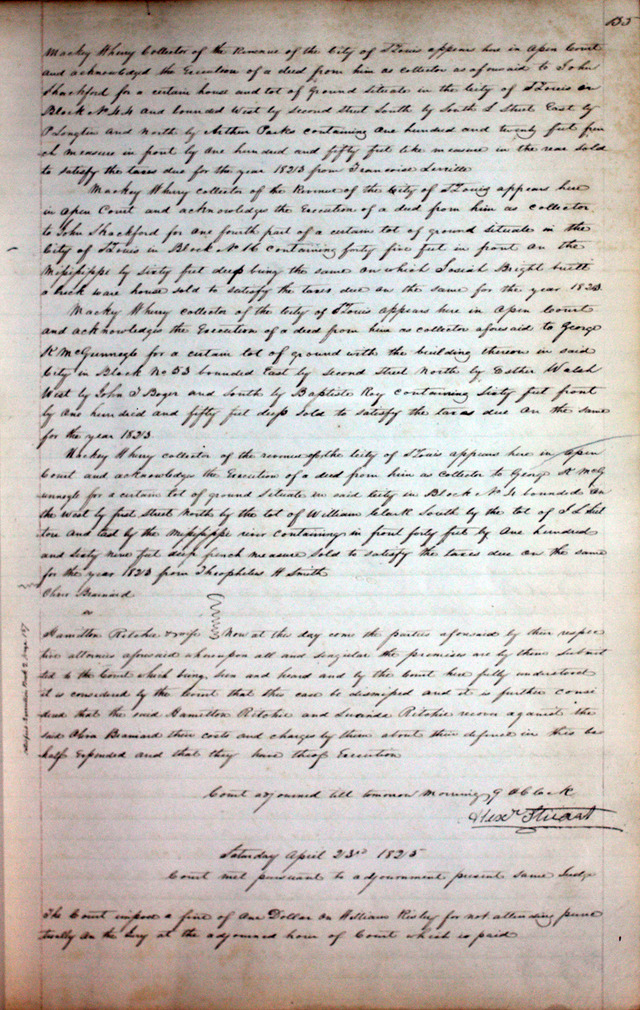 155
Mackey Wherry Collector of the Revenue of the City of St Louis appears here in open Court
and acknowledged the Execution of a deed from him as collector as aforesaid to John
Shackford for a certain house and lot of ground situate in the City of St Louis in
Block No 44 and bounded West by second street South by South S Street East by
P and North by Arthur Parks containing one hundred and twenty feet fren
ch measure in front by one hundred and fifty feet like measure in the rear sold
to satisfy the taxes due for the year 1823 from
Mackey Wherry collector of the Revenue of the City of St Louis appears here
in open Court and acknowledges the Execution of a deed from him as collector
to John Shackford for one fourth part of a certain lot of ground situate in the
City of St Louis in Block No 16 containing forty five feet in front on the
Mississippi by sixty feet deep being the same on which Josiah Bright built
a brick ware house sold to satisfy the taxes due on the same for the year 1823
Mackey Wherry collector of the City of St Louis appears here in open Court
and acknowledges the Execution of a deed from him as collector aforesaid to George
K McGunnegle for a certain lot of ground with the building thereon in said
City in Block No 53 bounded East by second Street North by Esther Walsh
West by John J Boger and South by Baptiste Roy containing sixty feet front
by one hundred and fifty feet deep sold to satisfy the taxes due on the same
for the year 1823
Mackey Wherry collector of the revenue of the City of St Louis appears here in open
Court and acknowledges the Execution of a deed from him as collector to George K McG
unnegle for a certain lot of ground situate in said City in Block No 4 bounded on
the west by first Street North by the lot of William Clark South by the lot of
and East by the Mississippi river containing in front forty feet by one hundred
and sixty nine feet deep french measure sold to satisfy the taxes due on the same
for the year 1823 from Theophilus H Smith
Brainard
vs
Hamilton Ritchie & wife Now at this day come the parties aforesaid by their respec
tive attornies aforesaid whereupon all and singular the premises are by them submit
ted to the Court which being seen and heard and by the Court here fully understood
it is considered by the Court that this case be dismissed and it is further consi
dered that the said Hamilton Ritchie and Lucinda Ritchie recover against the
said Brainard their costs and charges by them about their defence in this be
half Expended and that they have thereof Execution
Court adjourned till tomorrow morning 9 OClock
Alexr Stuart
Saturday April 23rd 1825
Court met pursuant to adjournment present same Judge
The Court imposed a fine of one Dollar on William Risley for not attending punc
tually on the Jury at the adjourned hour of Court which is paid